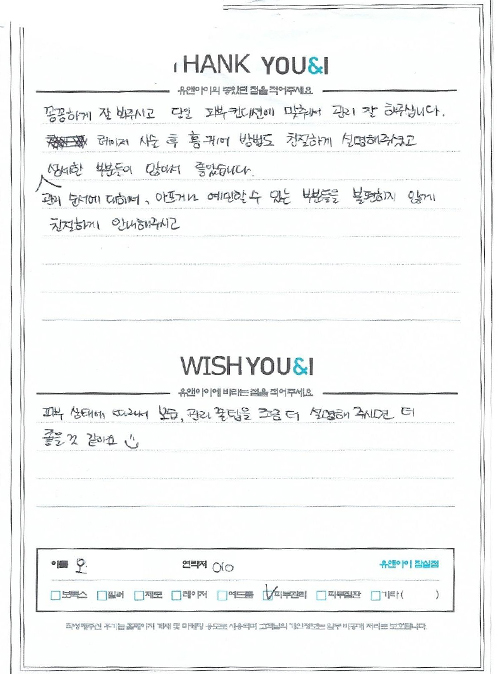 THANK YOU&I
유앤아이의 좋았던 점을 적어주세요.
꼼꼼하게 잘 봐주시고 당일 피부 컨디션에 맞춰서 관리 잘 해주십니다.
레이저 시술 후 홈케어 방법도 친절하게 설명해주셨고
상세한 부분들이 많아서 좋았습니다.
관리 순서에 대하여, 아프거나 예민할 수 있는 부분들을 불편하지 않게
친절하게 안내해주시고
WISH YOU&I
유앤아이에 바라는 점을 적어주세요.
피부 상태에 따라서 보습, 관리 꿀팁을 조금 더 설명해 주시면 더
좋을 것 같아요
이름 오 연락처 010 유앤아이 잠실점
보톡스 필러 제모 레이저 여드름 피부관리 피부질환 기타 ( )
작성해주신 후기는 홈페이지 게재 및 마케팅 용도로 사용되며 고객님의 개인정보는 일부 비공개 처리로 보호됩니다.